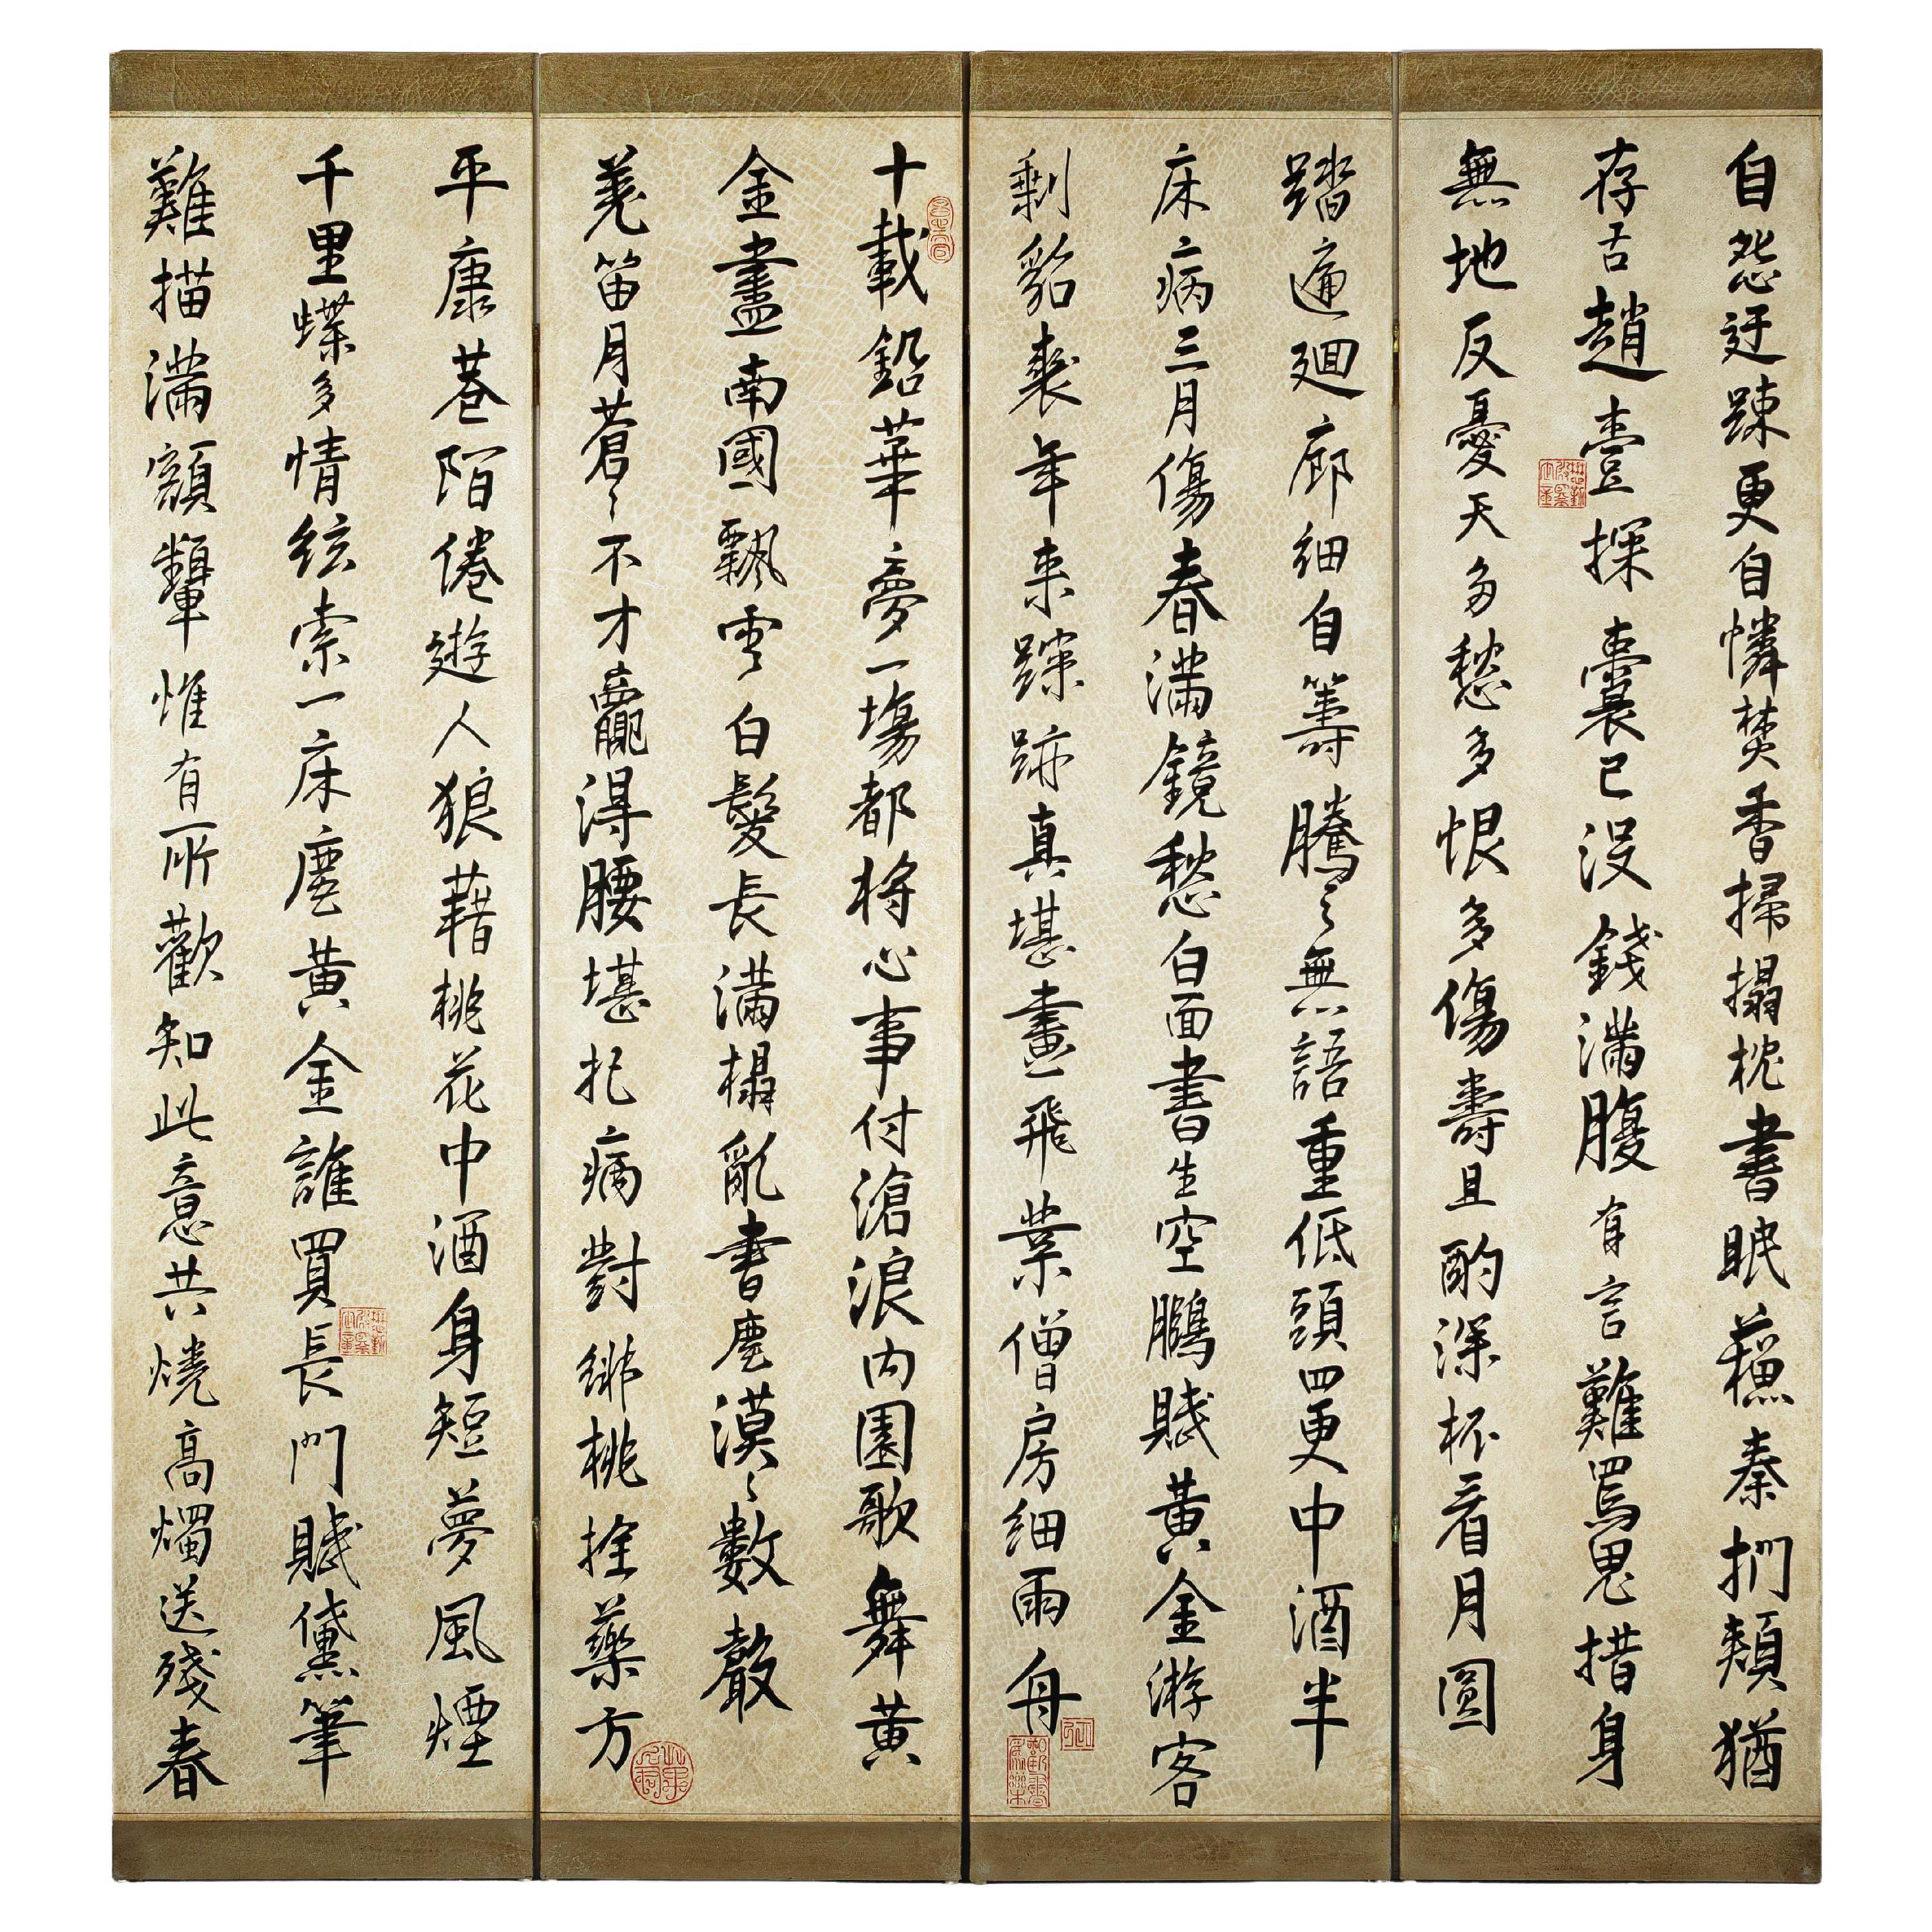 自怨迂踈更自憐焚香掃搨枕書眠蘓秦捫頰猶
存舌趙壹探囊已没錢滿腹有言難罵鬼措身
無地反憂天多愁多恨多傷壽且酌深杯看月圓
踏遍廻廊細自籌騰〻無語重低頭四更中酒半
床病三月傷春滿鏡愁白面書生空鵩賦黃金游客
剩貂裘年来蹤跡真堪畫飛葉僧房細雨舟
十載鉛華夢一塲都將心事付滄浪内園歌舞黃
金盡南國飄零白髮長滿榻亂書塵漠〻數聲
羗笛月蒼〻不才贏得腰堪把病對緋桃撿藥方
平康巷陌倦遊人狼藉桃花中酒身短夢風煙
千里蝶多情絃索一床塵黃金誰買長門賦黛筆
難描滿額顰惟有所歡知此意共燒高燭送殘春